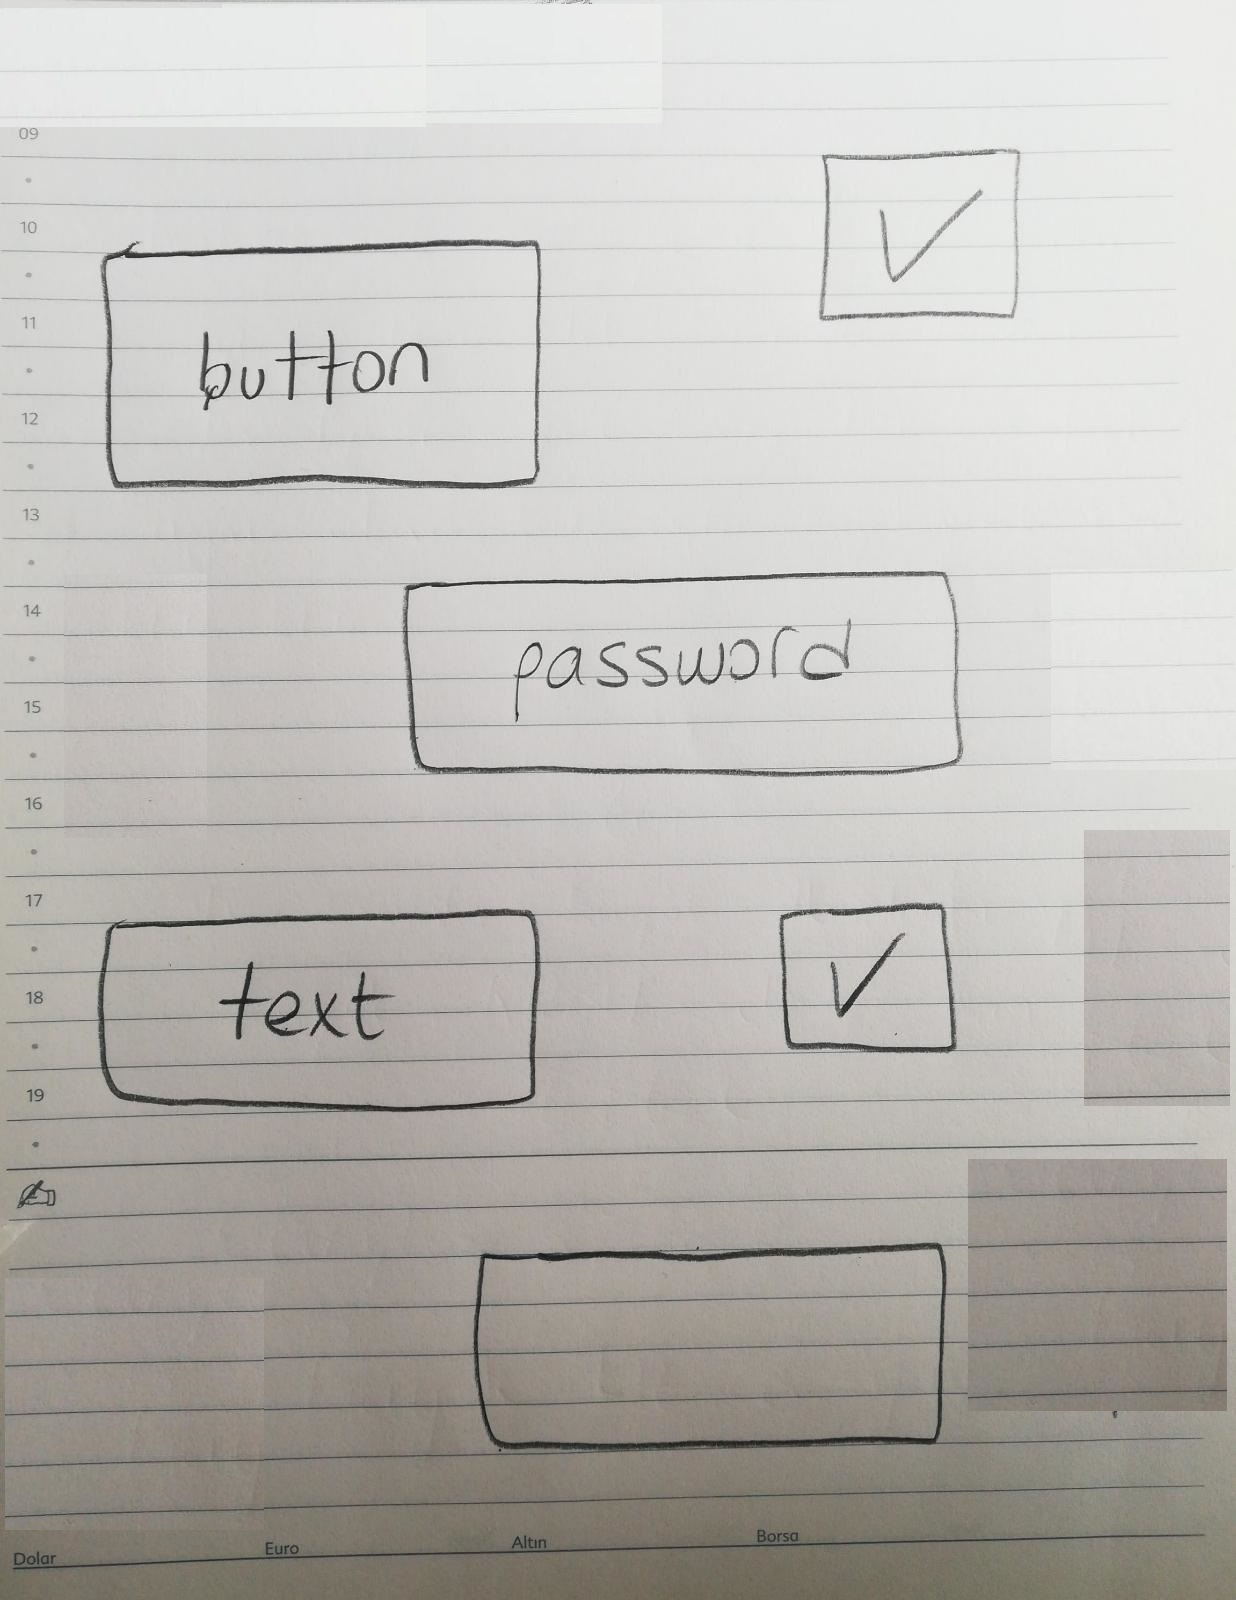 09
10
11
button
12
13
14
password
15
16
17
text
18
19
Dolar Euro Altın Borsa